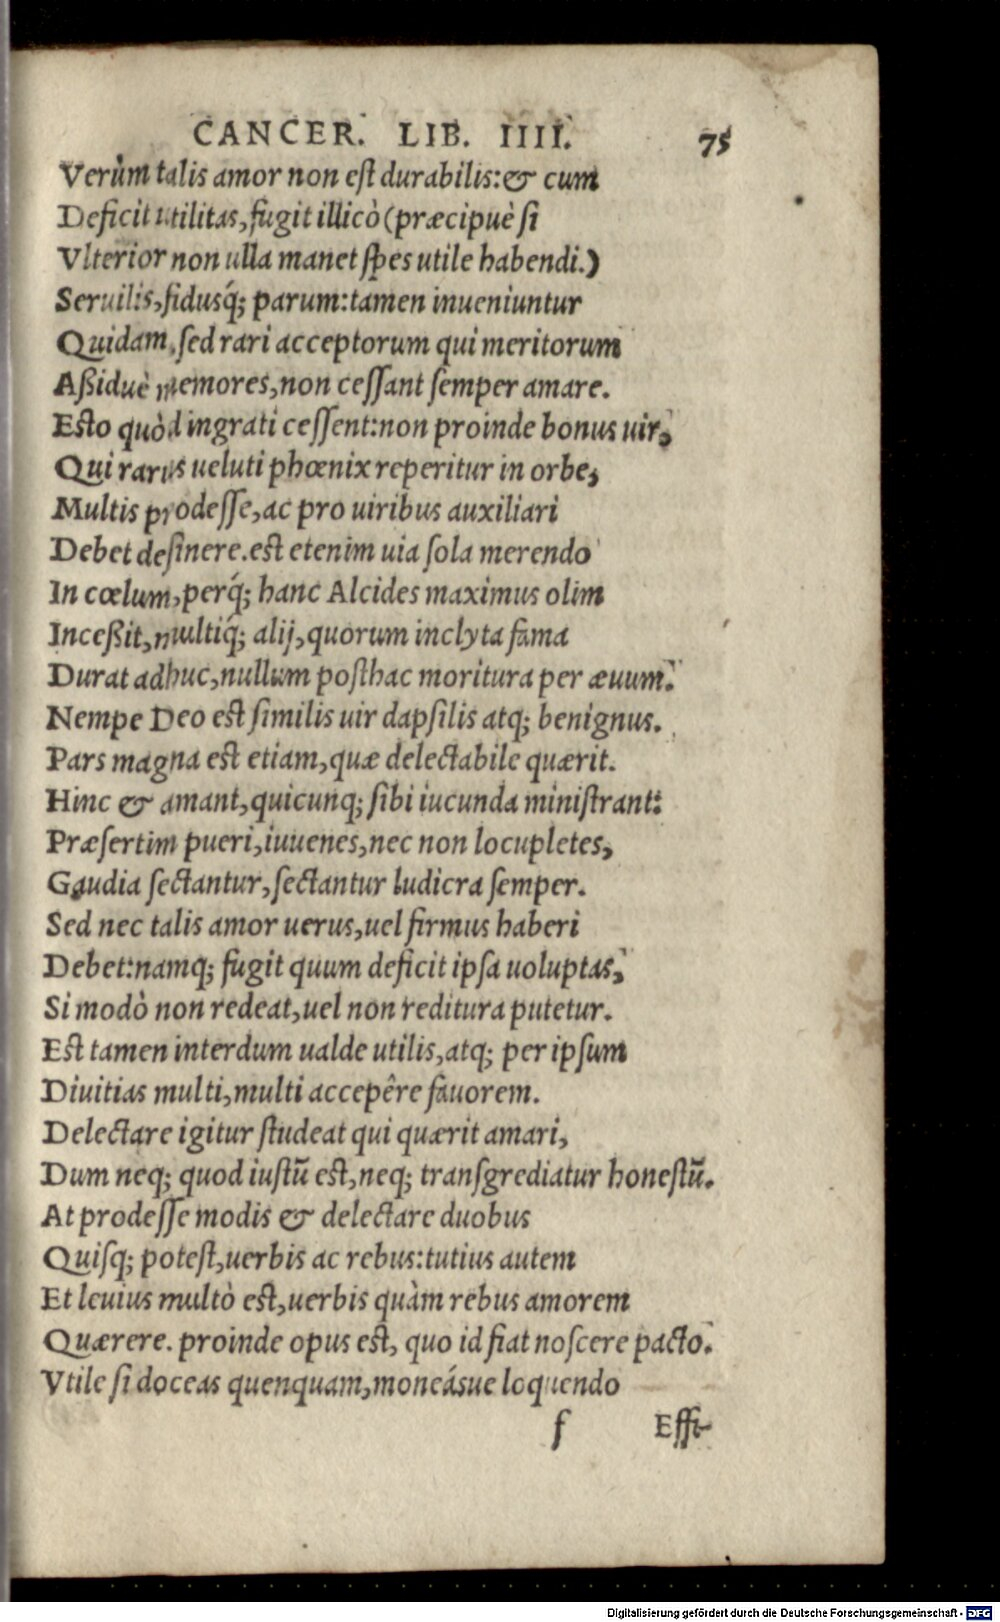 CANCER. LIB. IIII. 75
Verùm talis amor non est durabilis: & cum
Deficit utilitas, fugit illicò (præcipuè si
Vlterior non ulla manet spes utile habendi.)
Seruilis, fidusq́; parum: tamen inueniuntur
Quidam, sed rari acceptorum qui meritorum
Aßiduè memores, non cessant semper amare.
Esto quòd ingrati cessent: non proinde bonus uir,
Qui rarus ueluti phœnix reperitur in orbe,
Multis prodesse, ac pro uiribus auxiliari
Debet desinere. est etenim uia sola merendo
In cœlum, perq́; hanc Alcides maximus olim
Inceßit, multiq́; alij, quorum inclyta fama
Durat adhuc, nullum posthac moritura per æuum.
Nempe Deo est similis uir dapsilis atq; benignus.
Pars magna est etiam, quæ delectabile quærit.
Hinc & amant, quicunq; sibi iucunda ministrant:
Præsertim pueri, iuuenes, nec non locupletes,
Gaudia sectantur, sectantur ludicra semper.
Sed nec talis amor uerus, uel firmus haberi
Debet: namq; fugit quum deficit ipsa uoluptas,
Si modò non redeat, uel non reditura putetur.
Est tamen interdum ualde utilis, atq; per ipsum
Diuitias multi, multi accepêre fauorem.
Delectare igitur studeat qui quærit amari,
Dum neq; quod iustũ est, neq; transgrediatur honestũ.
At prodesse modis & delectare duobus
Quisq; potest, uerbis ac rebus: tutius autem
Et leuius multò est, uerbis quàm rebus amorem
Quærere. proinde opus est, quo id fiat noscere pacto.
Vtile si doceas quenquam, moneásue loquendo
f Effi-
Digitalisierung gefördert durch die Deutsche Forschungsgemeinschaft - DFG